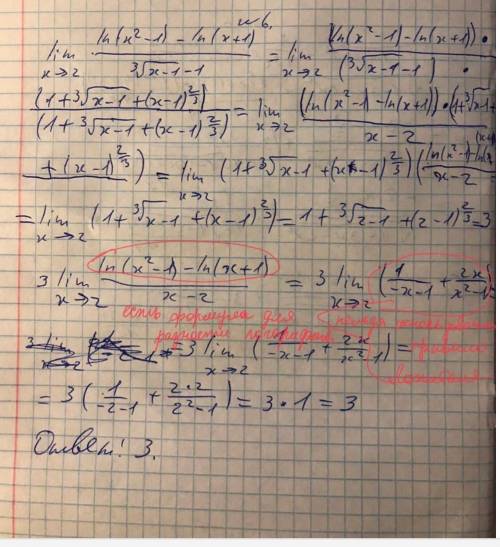 № 6.
lim x→2 (ln(x²-1) - ln(x+1)) / (∛(x-1) - 1) = lim x→2 ((ln(x²-1) - ln(x+1)) · / (∛(x-1) - 1) ·
(1+∛(x-1)+(x-1)^(2/3)) / (1+∛(x-1)+(x-1)^(2/3)) = lim x→2 ((ln(x²-1) - ln(x+1)) · (1+∛(x-1)+ / x-2
+ (x-1)^(2/3)) = lim x→2 (1+∛(x-1)+(x-1)^(2/3)) (ln(x²-1)-ln(x / x-2 =
= lim x→2 (1+∛(x-1)+(x-1)^(2/3)) = 1+∛(2-1)+(2-1)^(2/3) = 3
3 lim x→2 (ln(x²-1) - ln(x+1)) / (x-2) = 3 lim x→2 (1/(-x-1) + 2x/(x²-1)
есть формула для
разности логарифмов
правила
Лопиталя
= 3 lim x→2 (1/(-x-1) + 2x/(x²-1)) =
= 3 (1/(-2-1) + 2·2/(2²-1)) = 3·1 = 3
Ответ: 3.